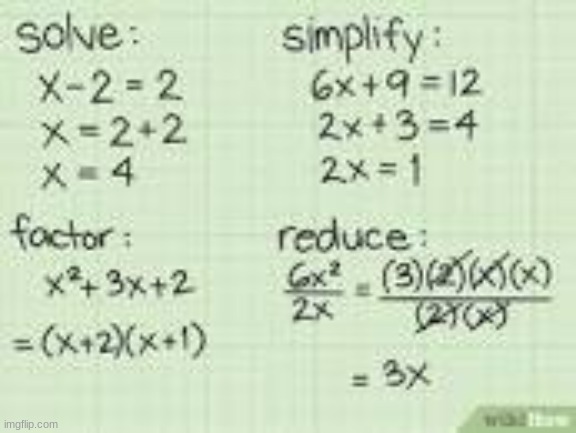 solve:
x-2=2
x=2+2
x=4
simplify:
6x+9=12
2x+3=4
2x=1
factor:
x²+3x+2
=(x+2)(x+1)
reduce:
6x²/2x = (3)(2)(x)(x)/(2)(x)
= 3x
wikiHow
imgflip.com